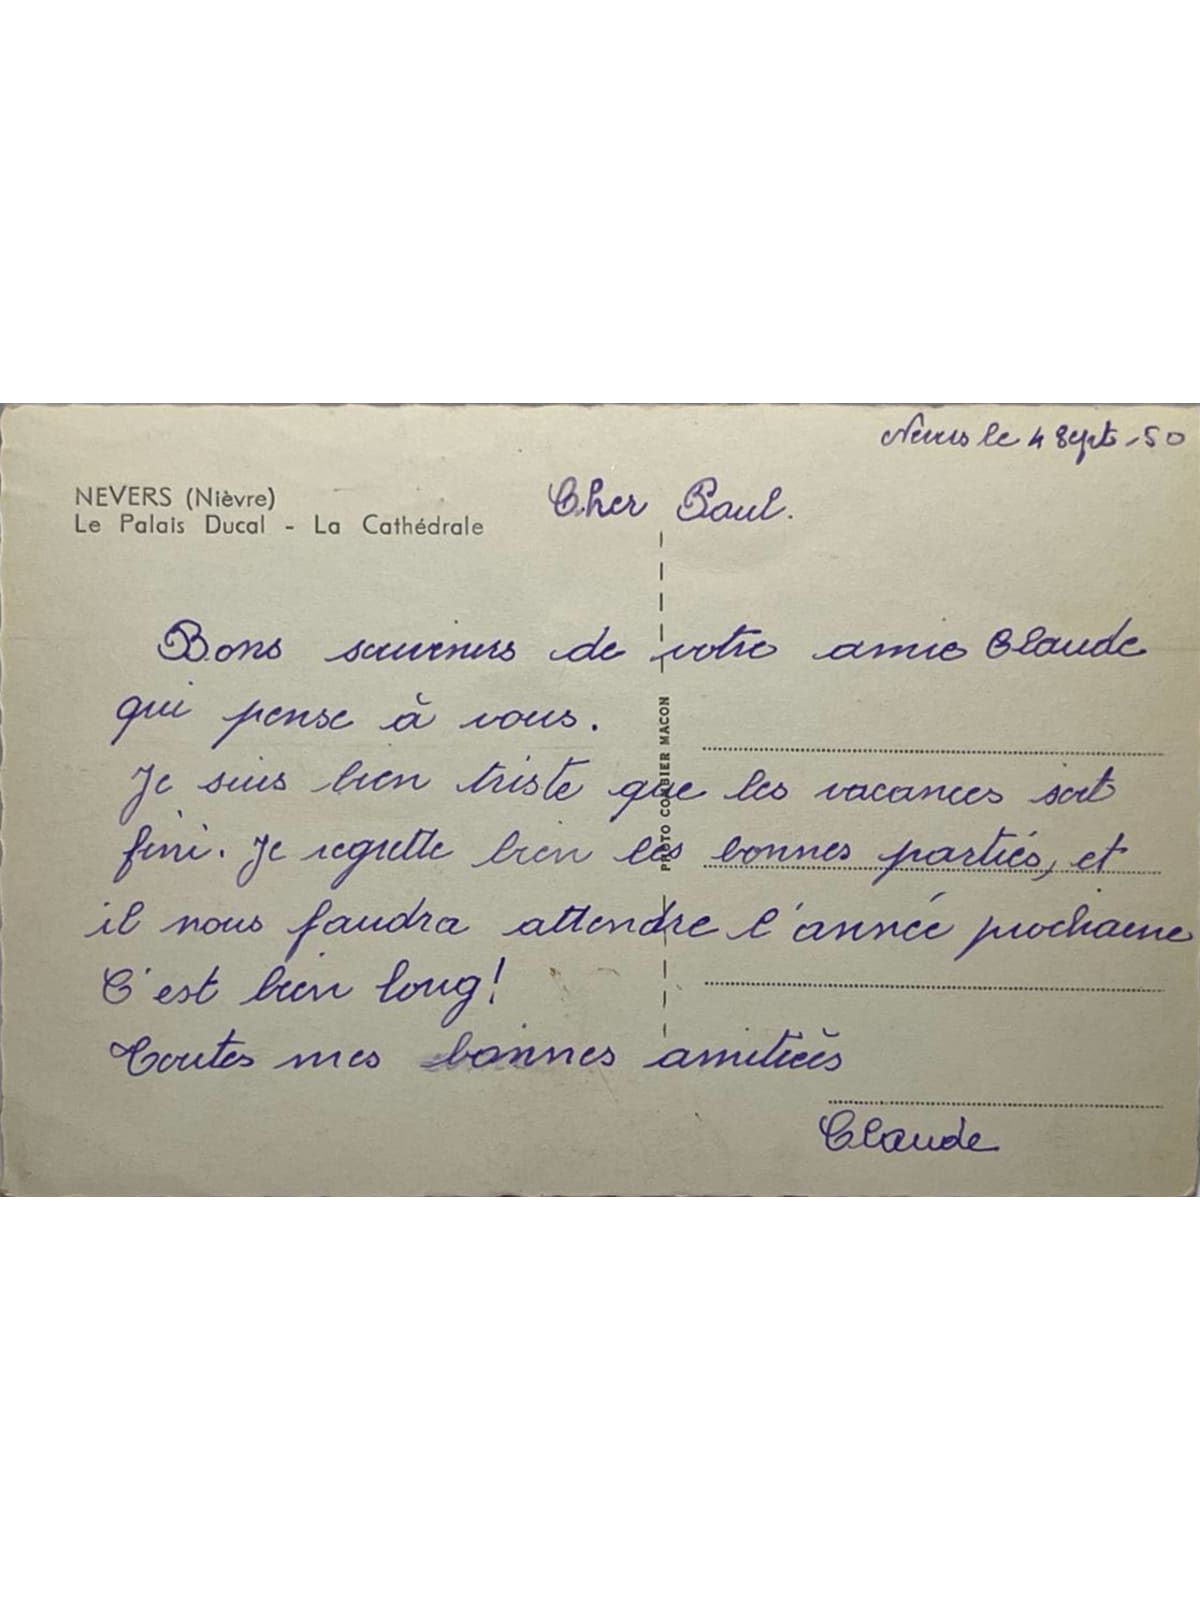 Nevers le 4 Sept. 50
NEVERS (Nièvre)
Le Palais Ducal - La Cathédrale
Cher Paul.
Bons souvenirs de votre amie Claude
qui pense à vous.
PHOTO COMBIER MACON
Je suis bien triste que les vacances sont
fini. Je regrette bien les bonnes partiés, et
il nous faudra attendre l'année prochaine
C'est bien long!
Toutes mes bonnes amitiés
Claude